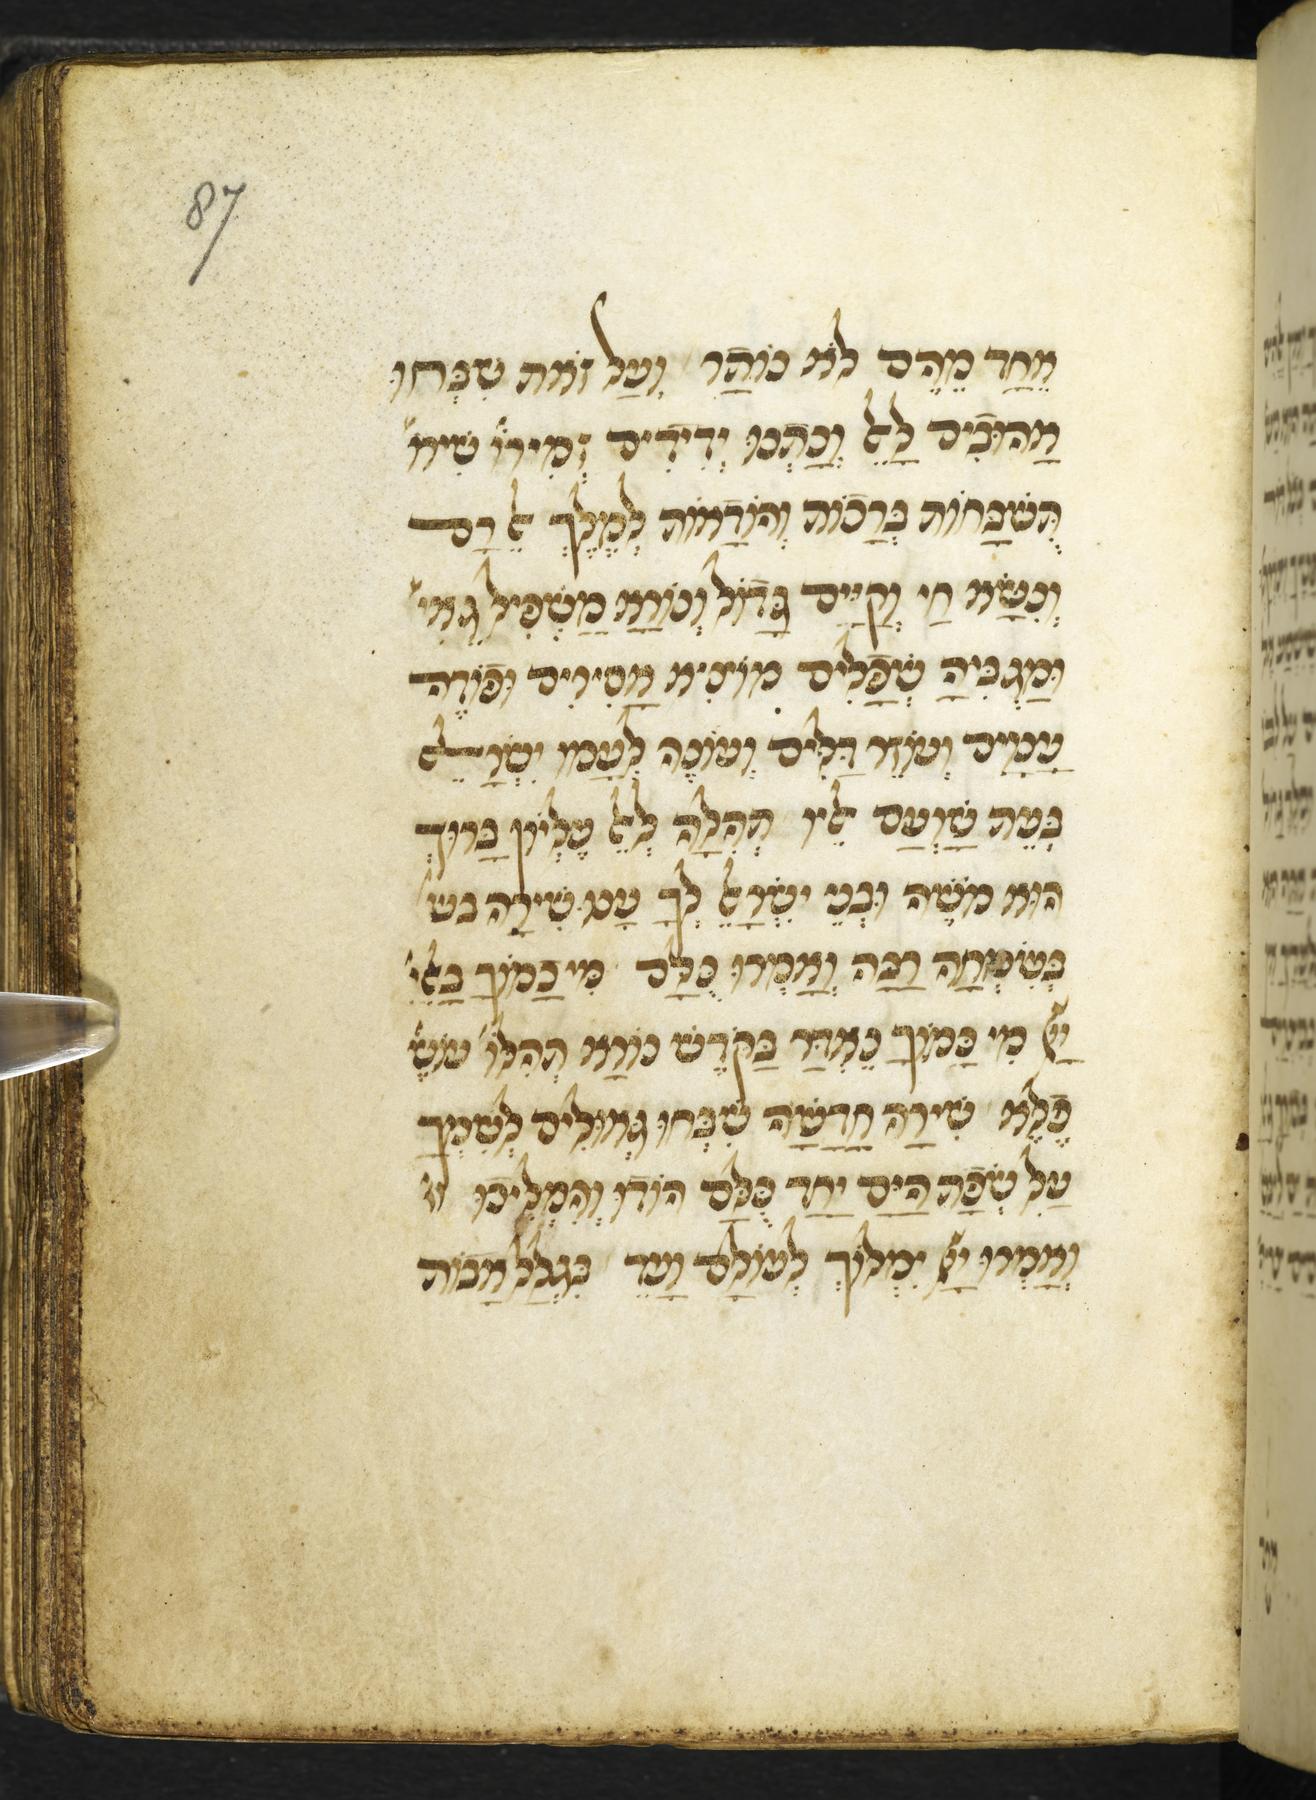 87
אֶחַד מֵהֶם לֹא נוֹתַר וְעַל זֹאת שִבְּחוּ
אַהוּבִים לָאֵל וְנָתְנוּ יְדִידִים זְמִירוֹ׳ שִׁירוֹ׳
תֻּשְׁבָּחוֹת בְּרָכוֹת וְהוֹדָאוֹת לְמֶלֶךְ אֵל רָם
וְנִשָּׂא חַי וְקַיָּים גָּדוֹל וְנוֹרָא מַשְׁפִּיל גֵּאִי׳
וּמַגְבִּיהַּ שְׁפָלִים מוֹצִיא אֲסִירִים וּפוֹדֶה
עֲנָוִים וְעוֹזֵר דַּלִּים וְעוֹנֶה לְעַמּוֹ יִשְׂרָאֵל
בְּעֵת שַׁוְּעָם אֵלָיו תְּהִלָּה לְאֵל עֶלְיוֹן בָּרוּךְ
הוּא מֹשֶׁה וּבְנֵי יִשְׂרָאֵל לְךָ עָנוּ שִׁירָה בש׳
בְּשִׂמְחָה רַבָּה וְאָמְרוּ כֻלָּם מִי כָמוֹךָ בָּאֵלִ׳
יְיָ מִי כָּמוֹךָ נֶאְדָּר בַּקֹּדֶשׁ נוֹרָא תְהִלּוֹ׳ עוֹשֶׂ׳
פֶלֶא שִׁירָה חֲדָשָׁה שִׁבְּחוּ גְאוּלִים לְשִׁמְךָ
עַל שְׂפַת הַיָּם יַחַד כֻּלָּם הוֹדוּ וְהִמְלִיכוּ
וְאָמְרוּ יְיָ יִמְלוֹךְ לְעוֹלָם וָעֶד בִּגְלַל אָבוֹת